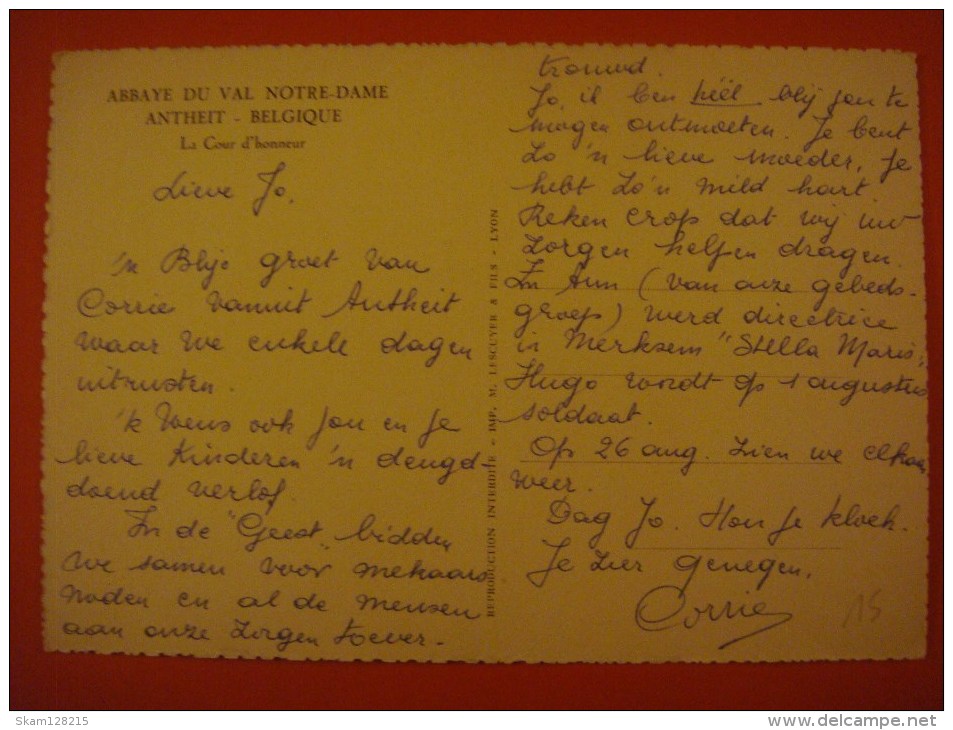 ABBAYE DU VAL NOTRE-DAME
ANTHEIT - BELGIQUE
La Cour d'honneur
Lieve Jo.
'n Blije groet van
Corrie vanuit Antheit
waar we enkele dagen
uitrusten.
'k Wens ook jou en je
lieve kinderen 'n deugd-
doend verlof.
In de "Geest" bidden
we samen voor mekaars
noden en al de mensen
aan onze zorgen toever-
REPRODUCTION INTERDITE - IMP. M. LESCUYER & FILS - LYON
trouwd.
Jo, ik ben héél blij jou te
mogen ontmoeten. Je bent
zo 'n lieve moeder, je
hebt zo'n mild hart.
Reken erop dat wij uw
zorgen helpen dragen.
Zr Ann (van onze gebeds-
groep) werd directrice
in Merksem "Stella Maris"
Hugo wordt op 1 augustus
soldaat.
Op 26 aug. zien we elkaar
weer.
Dag Jo. Hou je kloek.
Je zeer genegen,
Corrie
15
Skam128215
www.delcampe.net